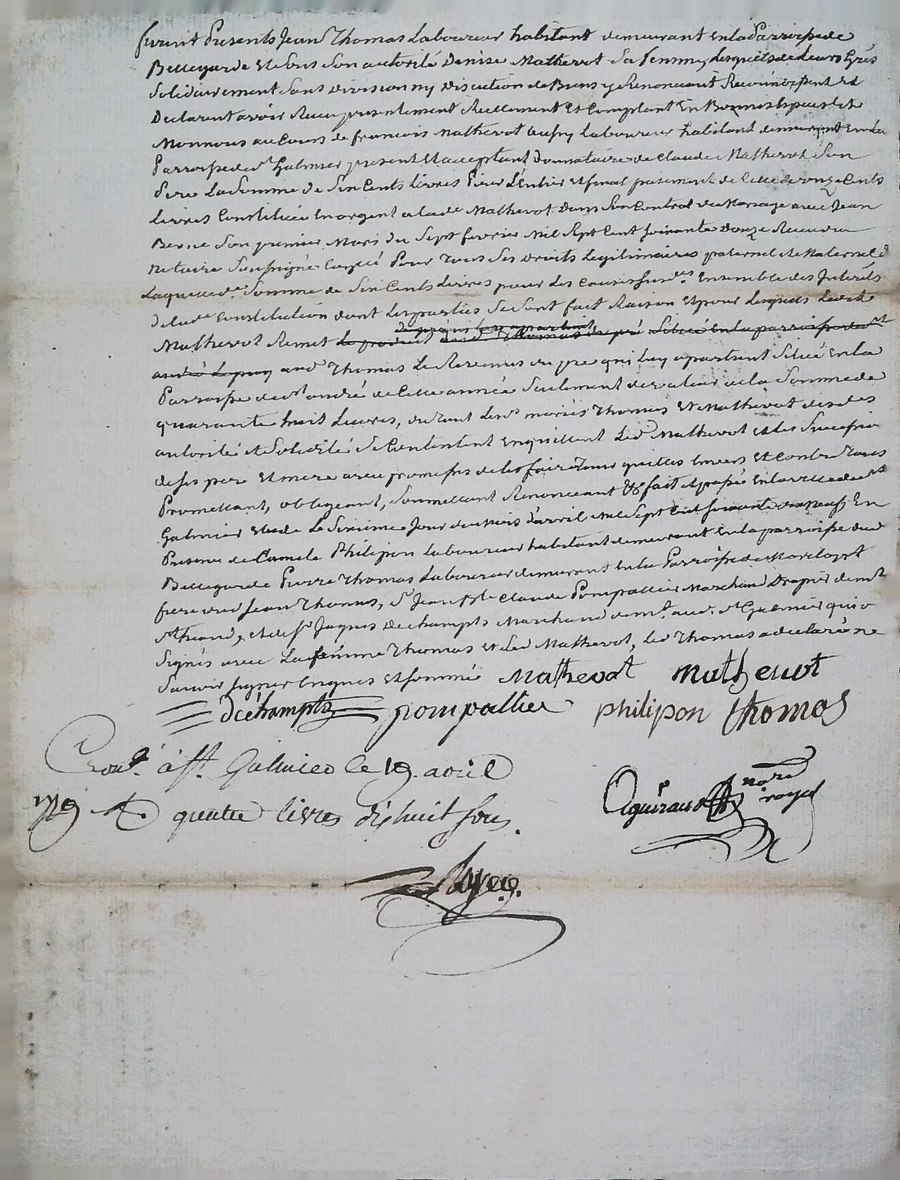 furent Presents Jean Thomas Laboureur habitant demeurant En la Parroisse de
Bellegarde Et sous son autorité Denise Mathevot Sa femme, Lesquels de leurs Grés
Solidairement Sans division ny discution de Biens y Renonceant
Declarant avoir Recu presentement Reellement Et Comptant En Bonnes Espèces de
Monnoye au Cours de francois Mathevot aussy Laboureur habitant demeurant En la
Parroisse de St Galmier present Et acceptant Donnataire de Claude Mathevot Son
Pere La Somme de Six Cents Livres Pour L'Entier Et final paiement de Celle de onze Cents
Livres Constituée En argent a lade Mathevot Dans Son Contrat de Mariage avec Jean
Son premier Mary du Sept fevrier Mil Sept Cent soixante Douze Receu du
Notaire Soussigné Pour Tous Ses Droits Legitimaires paternels Et Maternels
Laquelle de Somme de Six Cents Livres pour les Ensemble des Interêts
de lade Constitution dont Les parties Se sont fait Raison Et pour Lesquels Led
Mathevot Remet
aud Thomas Le Revenus du pré qui Luy apartient Situé En la
Parroisse de St andré de Cette année Seulement de valeur de la Somme de
quarante huit Livres, du tout Les mariés Thomas Et Mathevot des des
autorité et Solidité Se Contentent En quittent Led Mathevot et les
de ses pere Et mere avec promesse de les faire Tenir quittes Envers Et Contre Tous
Promettant, obligeant, Soumettant Renonceant &c fait Et passé En la ville de St
Galmier Etude Le Sixieme Jour du Mois d'avril Mil Sept Cent soixante dix Neuf En
Presence de Camille Philipon laboureur habitant demeurant En la parroisse dud
Bellegarde Pierre Thomas Laboureur demeurant En la Parroisse de
frere dud Jean Thomas, Sr Jean Claude Pompallier Marchand Drapier demt
et de Sr Jaques Dechampts Marchand demt aud St Galmier qui ont
Signés avec La femme Thomas et Led Mathevot, Led Thomas a declaré ne
Savoir Signer Enquis Et sommé Mathevot Mathevot
Dechampts pompallier philipon thomas
Cont. à St. Galmier le 19. avril
1779 quatre livres dixhuit sous.
nore
royal